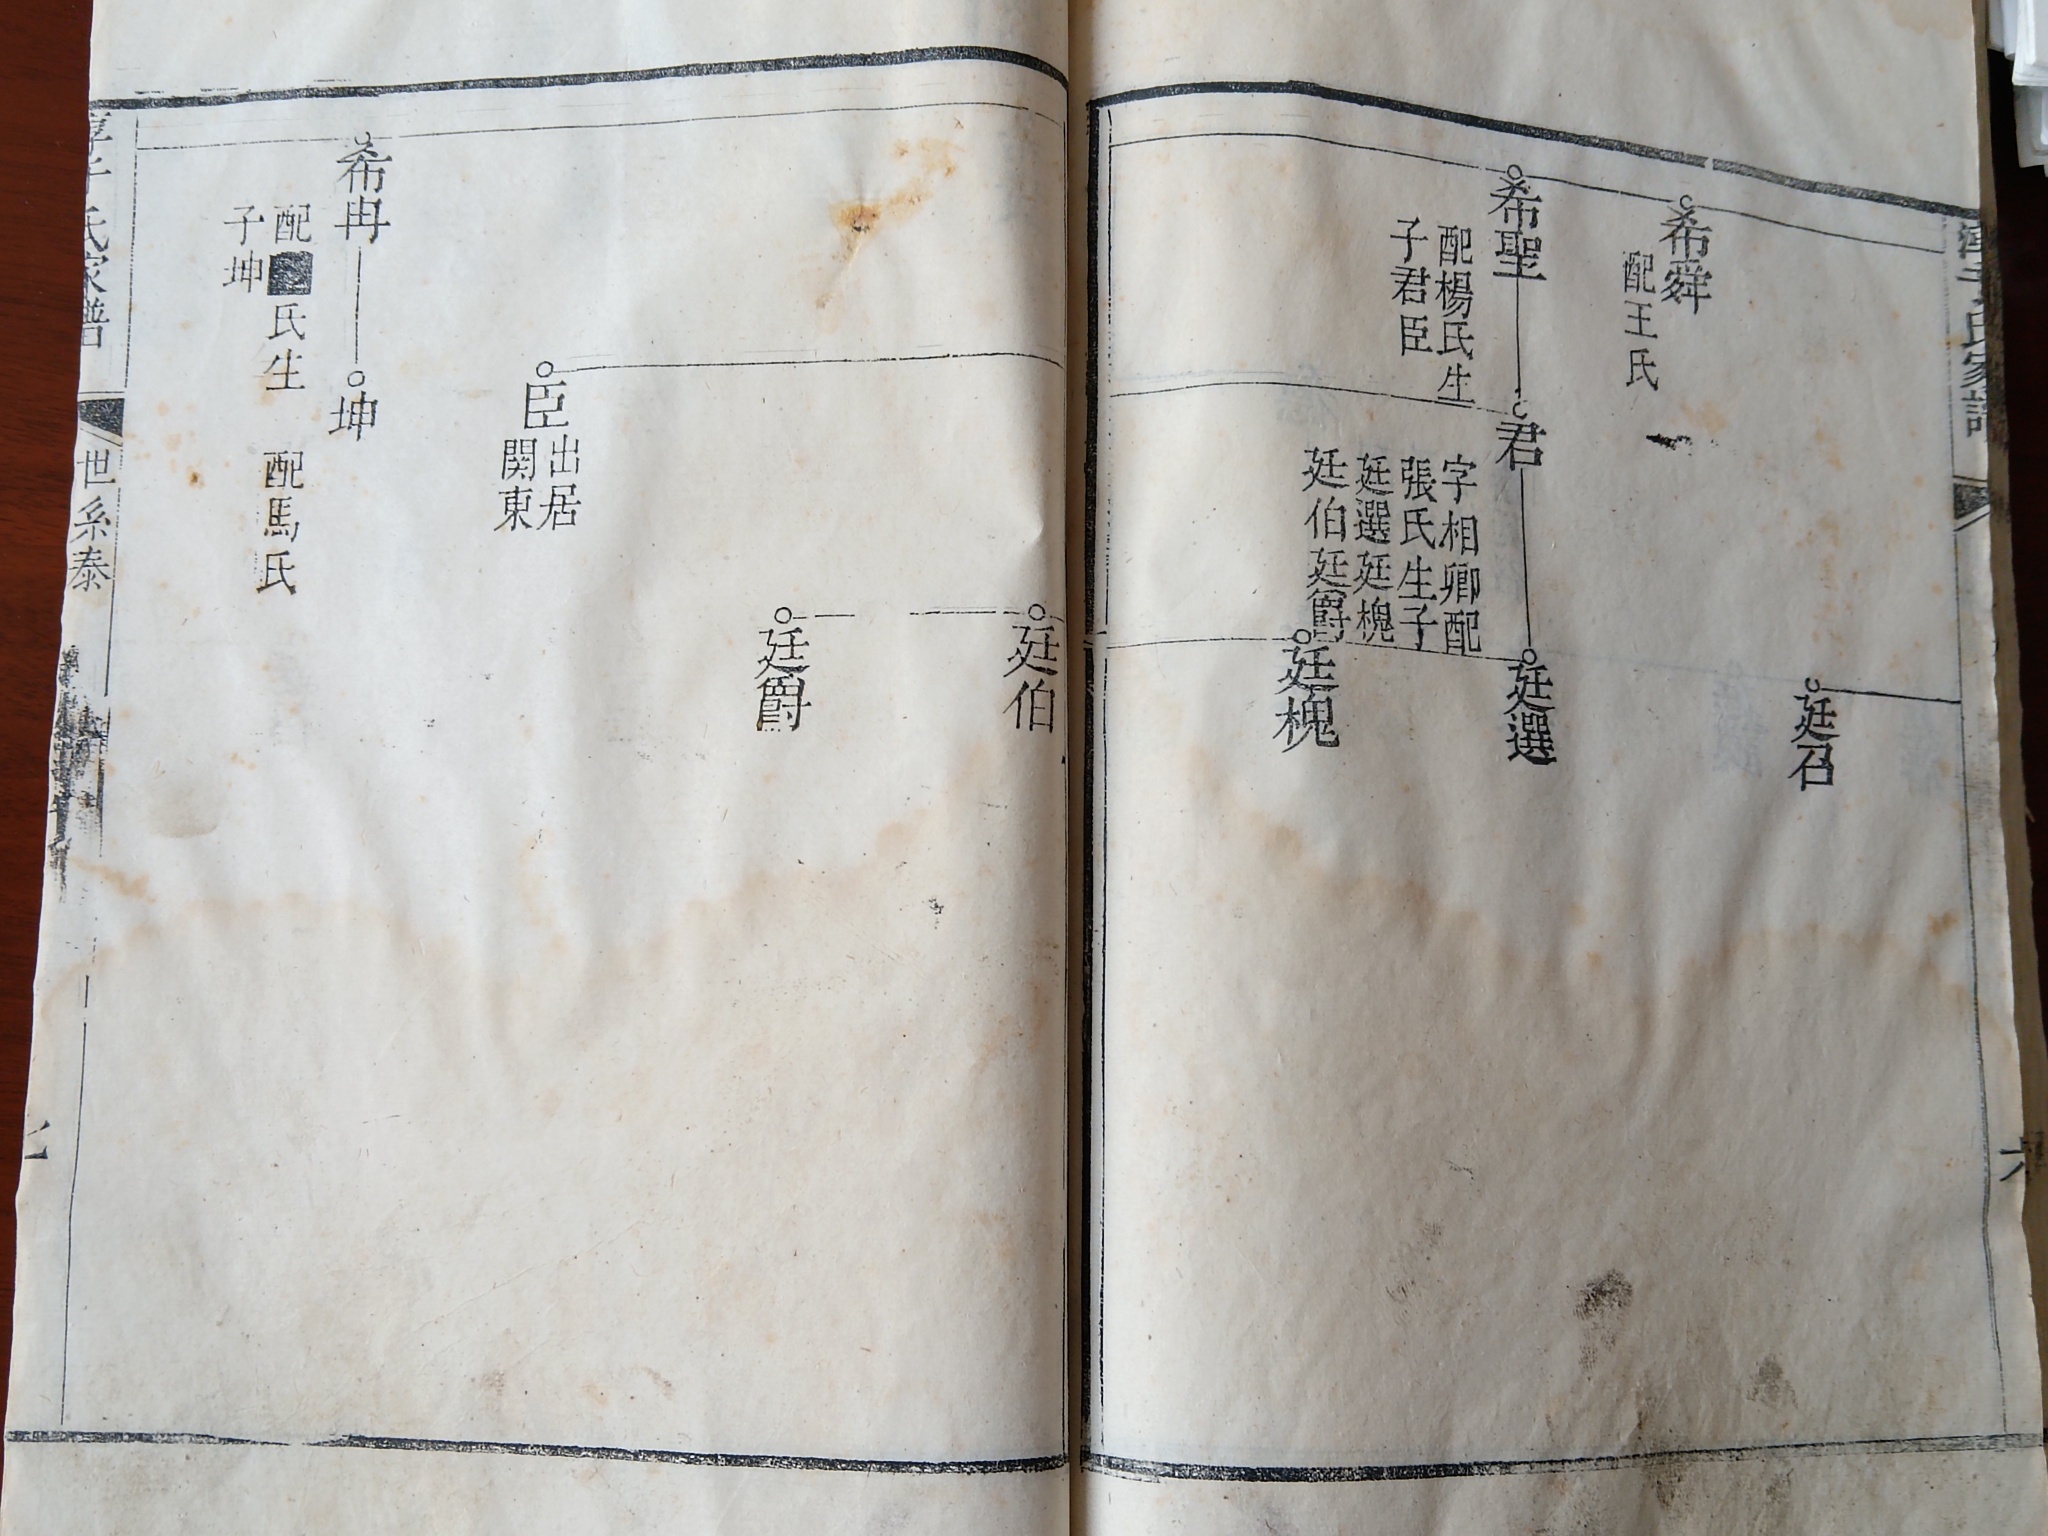 淳于氏家譜
希舜
配王氏
廷召
希聖
配楊氏生
子君臣
君
字相卿配
張氏生子
廷選廷槐
廷伯廷爵
廷選
廷槐
廷伯
廷爵
臣
出居
関東
希冉
配
氏生
子坤
坤
配馬氏
淳于氏家譜
世系泰